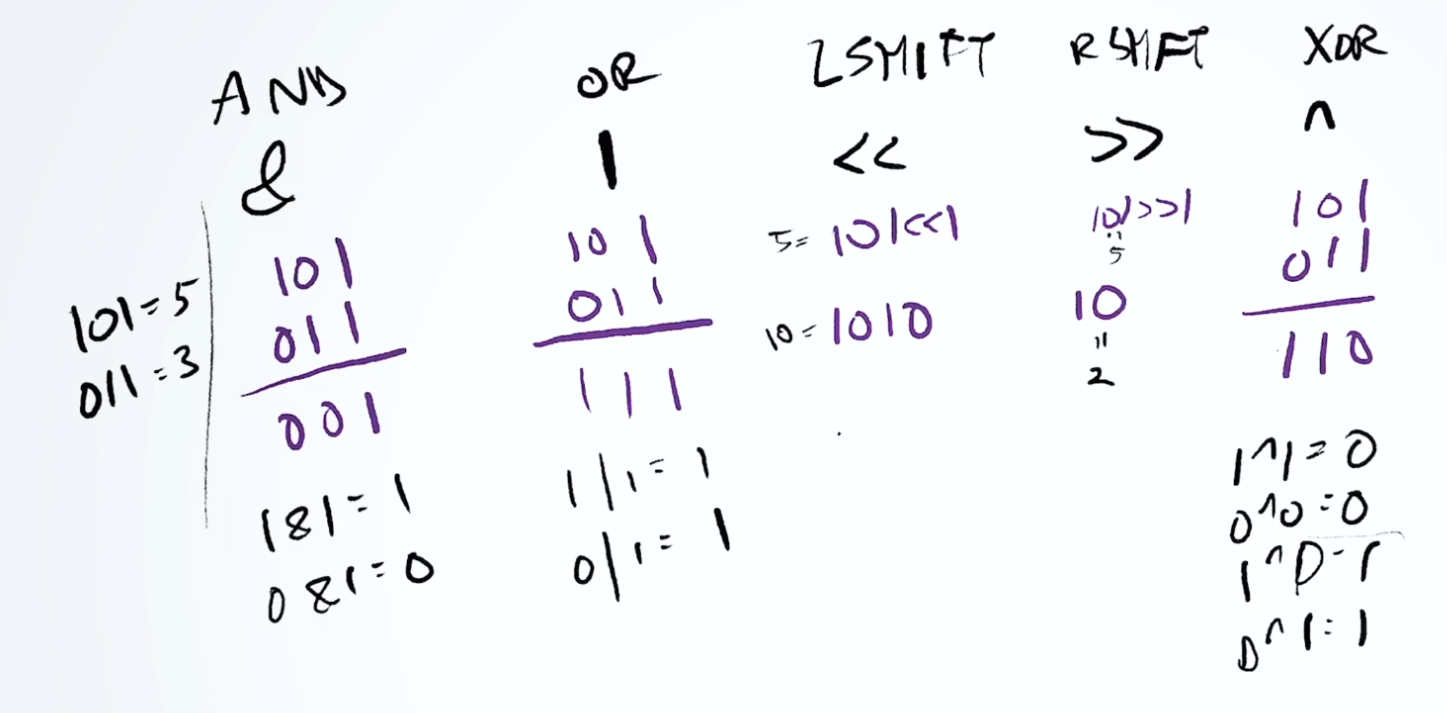 AND
&
101=5
011=3
101
011
001
1&1=1
0&1=0
OR
|
101
011
111
1|1=1
0|1=1
LSHIFT
<<
5=101<<1
10=1010
RSHIFT
>>
101>>1
"
5
10
"
2
XOR
^
101
011
110
1^1=0
0^0=0
1^0=1
0^1=1